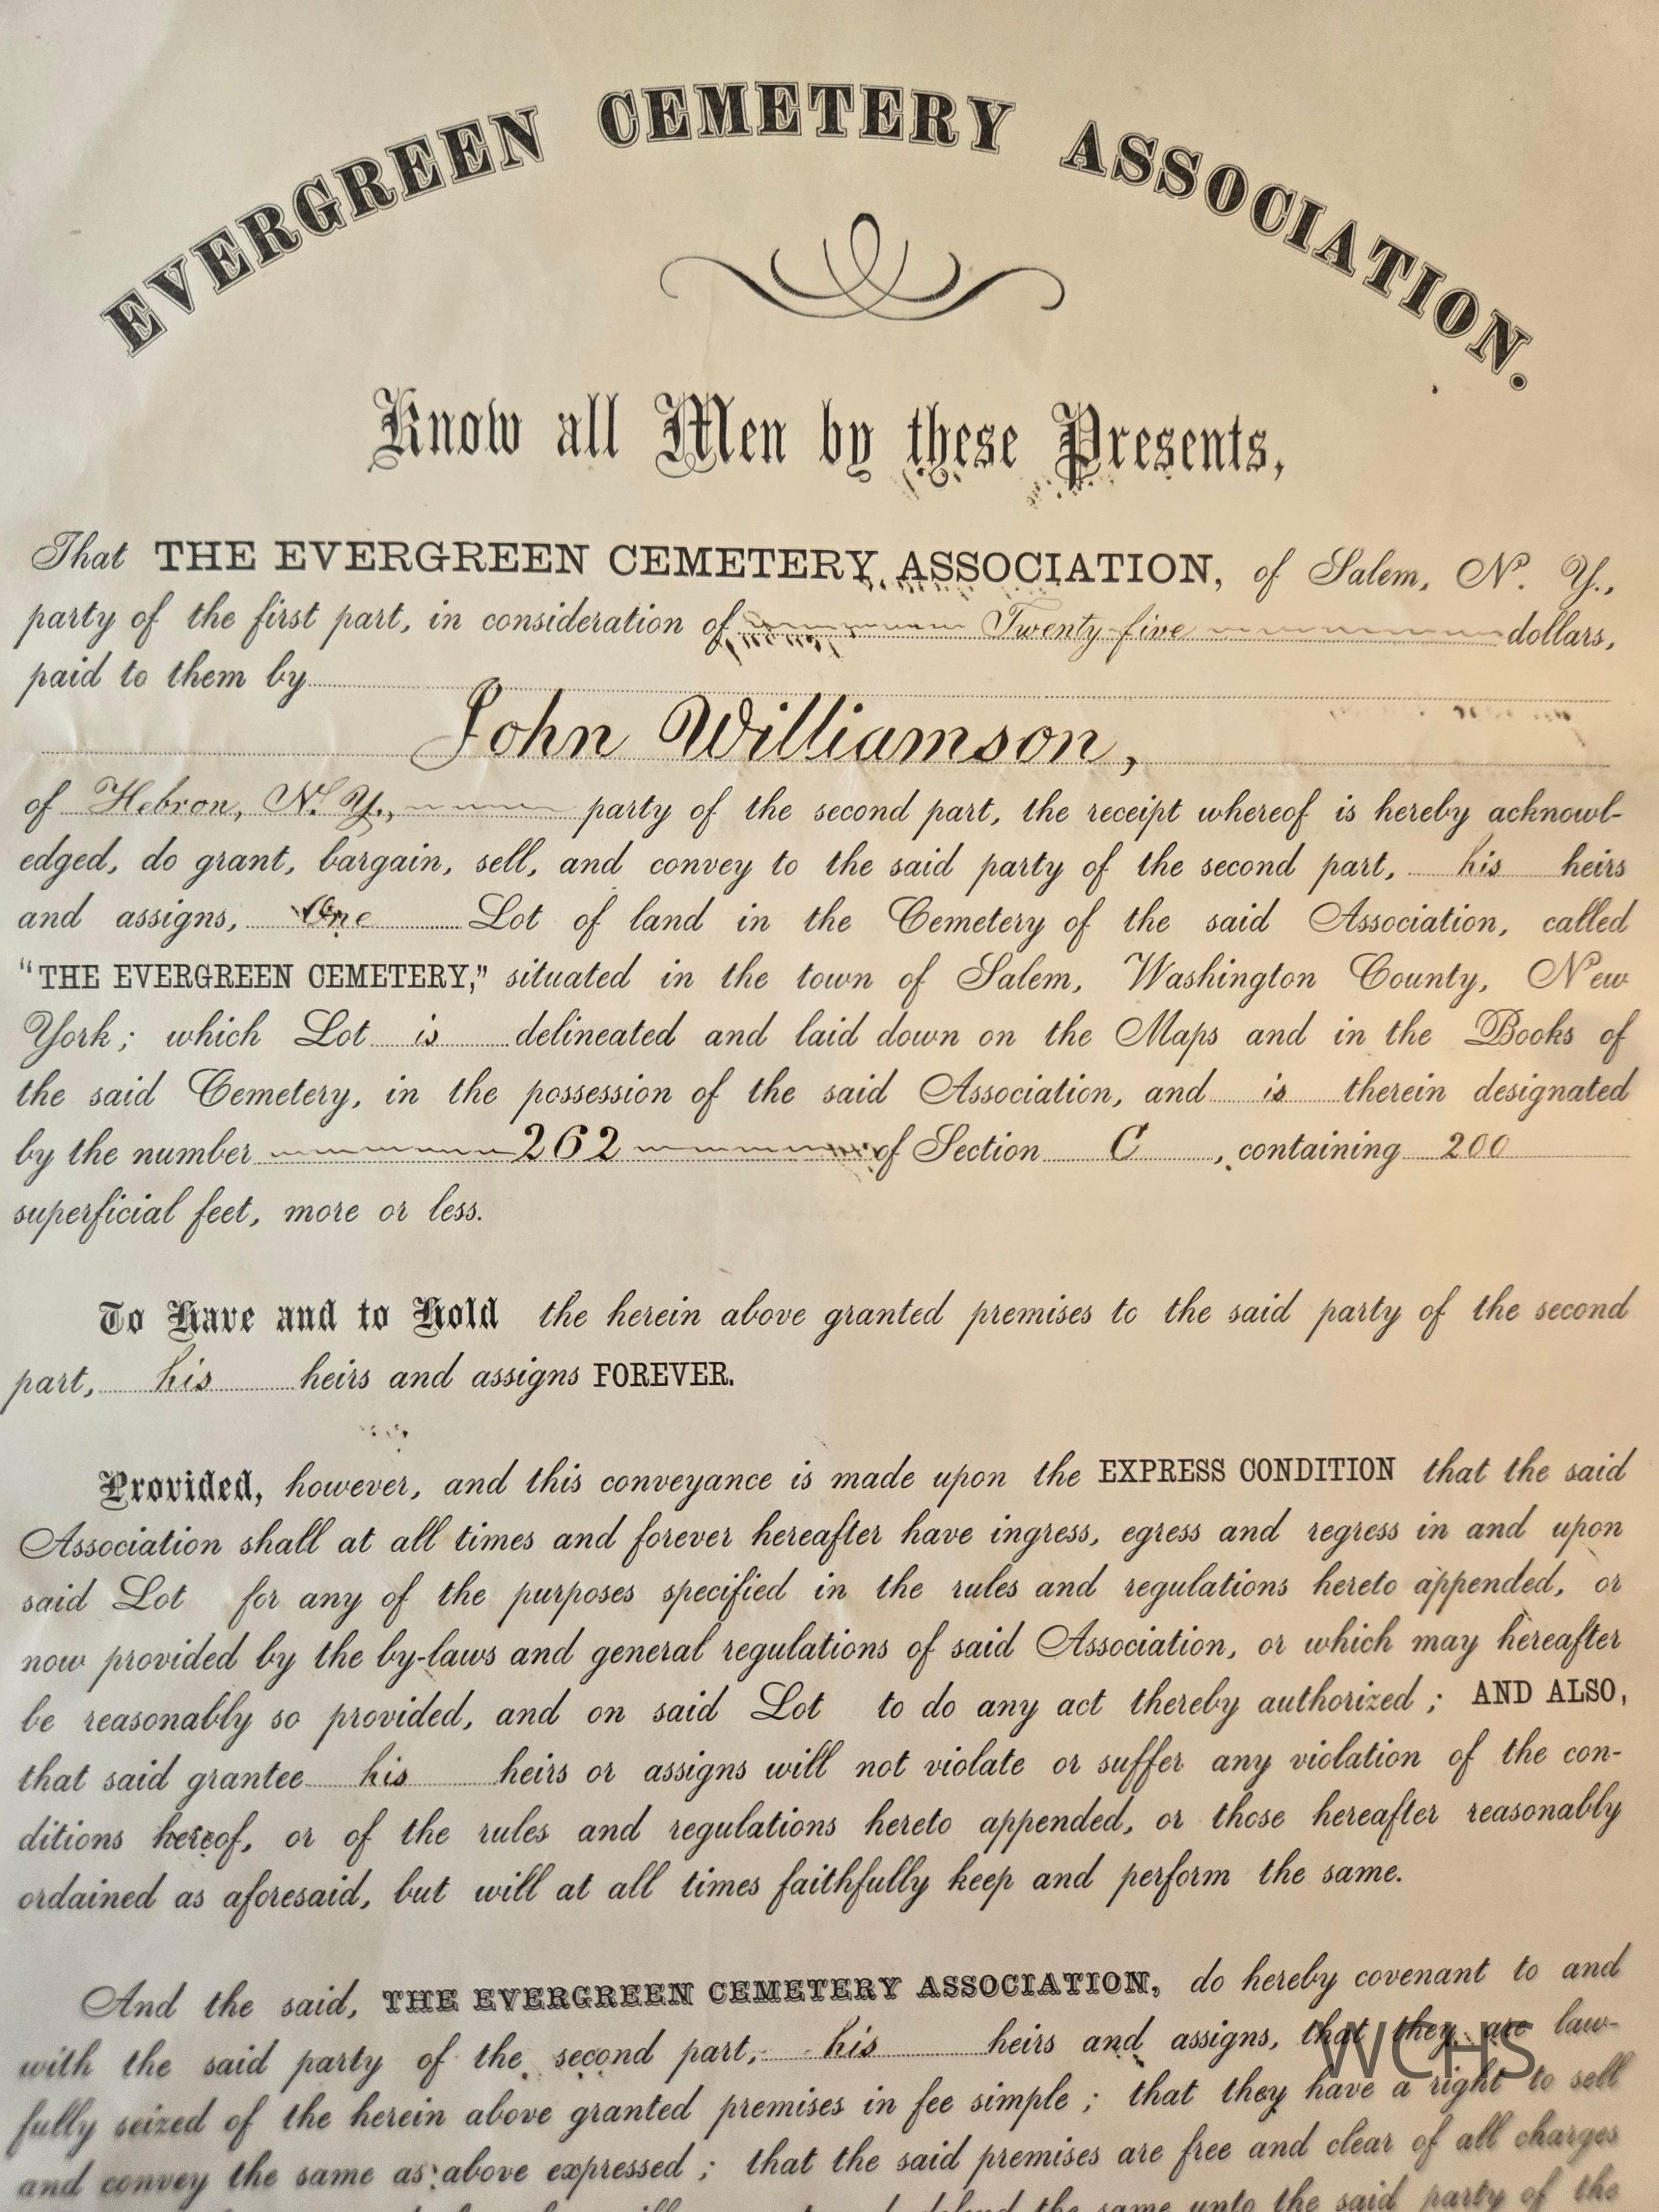 EVERGREEN CEMETERY ASSOCIATION.
Know all Men by these Presents,
That THE EVERGREEN CEMETERY ASSOCIATION, of Salem, N. Y.,
party of the first part, in consideration of Twenty-five dollars,
paid to them by
John Williamson,
of Hebron, N. Y., party of the second part, the receipt whereof is hereby acknowl-
edged, do grant, bargain, sell, and convey to the said party of the second part, his heirs
and assigns, One Lot of land in the Cemetery of the said Association, called
"THE EVERGREEN CEMETERY," situated in the town of Salem, Washington County, New
York; which Lot is delineated and laid down on the Maps and in the Books of
the said Cemetery, in the possession of the said Association, and is therein designated
by the number 262 of Section C, containing 200
superficial feet, more or less.
To Have and to Hold the herein above granted premises to the said party of the second
part, his heirs and assigns FOREVER.
Provided, however, and this conveyance is made upon the EXPRESS CONDITION that the said
Association shall at all times and forever hereafter have ingress, egress and regress in and upon
said Lot for any of the purposes specified in the rules and regulations hereto appended, or
now provided by the by-laws and general regulations of said Association, or which may hereafter
be reasonably so provided, and on said Lot to do any act thereby authorized; AND ALSO,
that said grantee his heirs or assigns will not violate or suffer any violation of the con-
ditions hereof, or of the rules and regulations hereto appended, or those hereafter reasonably
ordained as aforesaid, but will at all times faithfully keep and perform the same.
And the said, THE EVERGREEN CEMETERY ASSOCIATION, do hereby covenant to and
with the said party of the second part, his heirs and assigns, that they are law-
fully seized of the herein above granted premises in fee simple; that they have a right to sell
and convey the same as above expressed; that the said premises are free and clear of all charges
the same unto the said party of the
WCHS